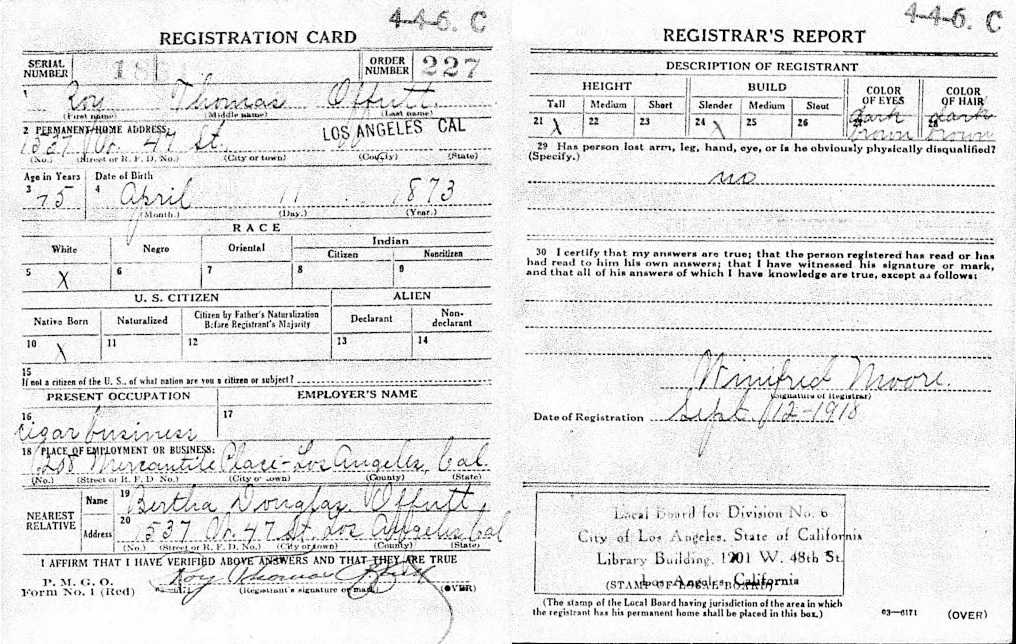 4-4-6. C
REGISTRATION CARD
SERIAL NUMBER
ORDER NUMBER 227
1 Roy Thomas Offutt
(First name) (Middle name) (Last name)
2 PERMANENT HOME ADDRESS:
LOS ANGELES CAL
1537 47 St.
(No.) (Street or R. F. D. No.) (City or town) (County) (State)
Age in Years Date of Birth
3 4 April 11 1873
(Month.) (Day.) (Year.)
RACE
White Negro Oriental Indian
Citizen Noncitizen
5 X 6 7 8 9
U. S. CITIZEN ALIEN
Native Born Naturalized Citizen by Father's Naturalization Before Registrant's Majority Declarant Non-declarant
10 X 11 12 13 14
15
If not a citizen of the U. S., of what nation are you a citizen or subject?
PRESENT OCCUPATION EMPLOYER'S NAME
16 17
cigar business
18 PLACE OF EMPLOYMENT OR BUSINESS:
Mercantile Place - Los Angeles, Cal.
(No.) (Street or R. F. D. No.) (City or town) (County) (State)
NEAREST RELATIVE
Name 19 Bertha Douglas Offutt
Address 20 1537 47 St. Los Angeles Cal
(No.) (Street or R. F. D. No.) (City or town) (County) (State)
I AFFIRM THAT I HAVE VERIFIED ABOVE ANSWERS AND THAT THEY ARE TRUE
P. M. G. O.
Form No. 1 (Red) Roy Thomas Offutt
(Registrant's signature or mark) (OVER)
4-4-6. C
REGISTRAR'S REPORT
DESCRIPTION OF REGISTRANT
HEIGHT BUILD COLOR OF EYES COLOR OF HAIR
Tall Medium Short Slender Medium Stout
21 X 22 23 24 X 25 26 27 dark brown 28 dark brown
29 Has person lost arm, leg, hand, eye, or is he obviously physically disqualified?
(Specify.)
no
30 I certify that my answers are true; that the person registered has read or has
had read to him his own answers; that I have witnessed his signature or mark,
and that all of his answers of which I have knowledge are true, except as follows:
Winifred Moore.
(Signature of Registrar)
Date of Registration Sept. 12-1918
Local Board for Division No. 6
City of Los Angeles, State of California
Library Building, 1201 W. 48th St.
Los Angeles, California
(STAMP OF LOCAL BOARD)
(The stamp of the Local Board having jurisdiction of the area in which
the registrant has his permanent home shall be placed in this box.)
03—6171 (OVER)